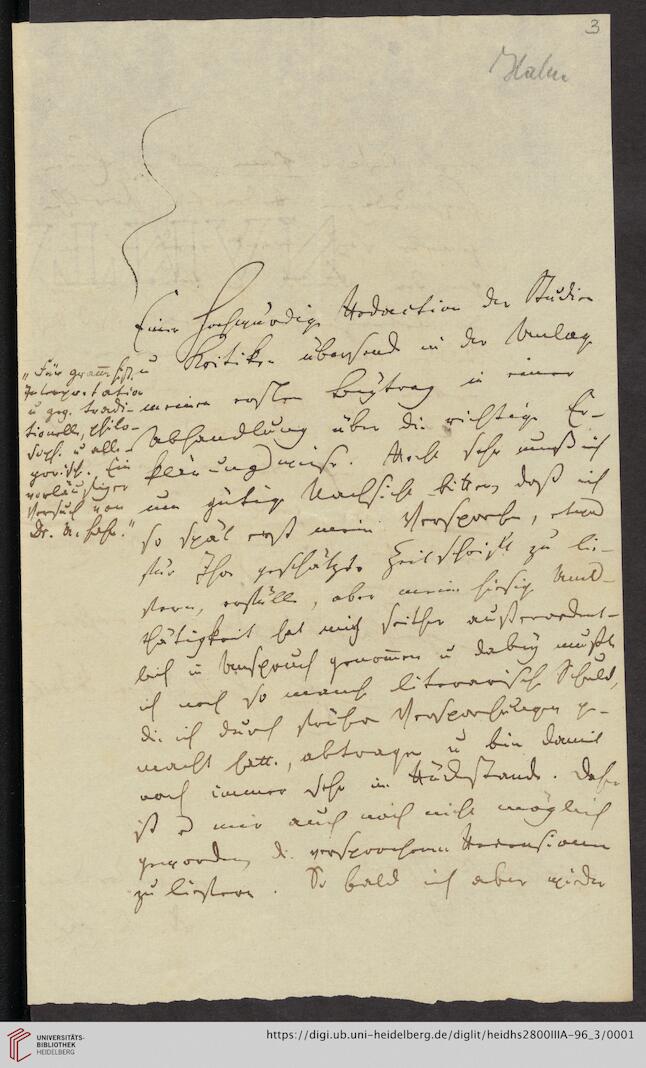 3
Hahn
Einer Hochwürdigen Redaction der Studien
u Kritiken übersende in der Anlage
meinen ersten Beytrag in einer
Abhandlung über die richtige Er-
klärung
um gütige Nachsicht bitten, daß ich
so spät erst mein Versprechen, etwas
für Ihre geschätzte Zeitschrift zu lie-
fern, erfülle, aber meine hiesige Amts-
thätigkeit hat mich seither außerordent-
lich in Anspruch genommen u dabey mußte
ich noch so manche literarische Schuld,
die ich durch frühere Versprechungen ge-
macht hatte, abtragen u bin damit
noch immer sehr im Rückstande. Daher
ist es mir auch noch nicht möglich
geworden, die versprochenen Recensionen
zu liefern. So bald ich aber wieder
"Für gramm. hist.
Interpretation
u geg. tradi-
tionelle, philo-
soph. u alle-
gorisch. Ein
vorläufiger
Versuch von
Dr. A. Hahn."
UNIVERSITÄTS-
BIBLIOTHEK
HEIDELBERG
https://digi.ub.uni-heidelberg.de/diglit/heidhs2800IIIA-96_3/0001